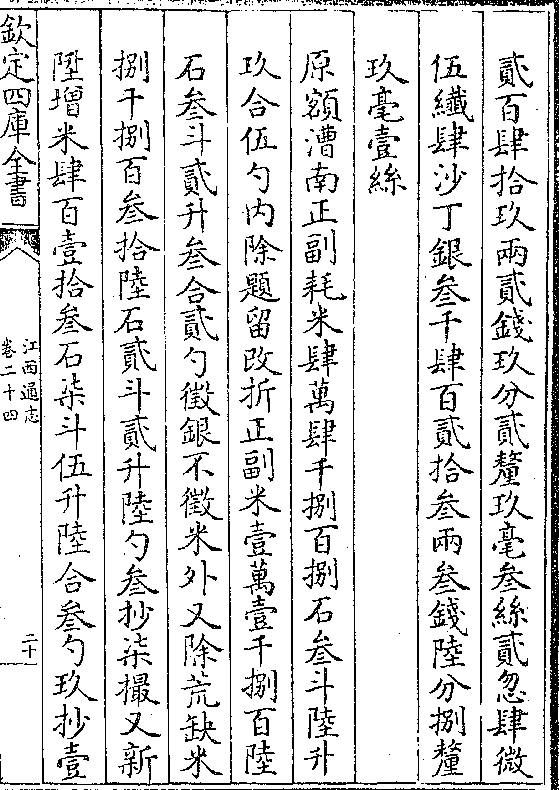 貳百肆拾玖兩貳錢玖分貳釐玖毫叁絲貳忽肆微
伍纖肆沙丁銀叁千肆百貳拾叁兩叁錢陸分捌釐
玖毫壹絲
原額漕南正副耗米肆萬肆千捌百捌石叁斗陸升
玖合伍勺内除題留改折正副米壹萬壹千捌百陸
石叁斗貳升叁合貳勺徵銀不徵米外又除荒缺米
捌千捌百叁拾陸石貳斗貳升陸勺叁抄柒撮又新
陞增米肆百壹拾叁石柒斗伍升陸合叁勺玖抄壹
欽定四庫全書
江西通志
卷二十四
二十